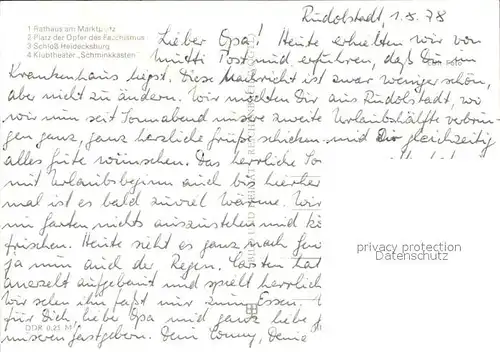 1 Rathaus am Marktplatz
2 Platz der Opfer des Faschismus
3 Schloß Heidecksburg
4 Klubtheater „Schminkkasten"
Rudolstadt, 1.8.78
Lieber Opa! Heute erhielten wir von
Mutti Post und erfuhren, daß Du im
Krankenhaus liegst. Diese Nachricht ist zwar weniger schön,
aber nicht zu ändern. Wir möchten Dir aus Rudolstadt, wo
wir nun seit Sonnabend unsere zweite Urlaubshälfte verbrin-
gen ganz, ganz herzliche Grüße schicken und Dir gleichzeitig
alles Gute wünschen. Das herrliche So
mit Urlaubsbeginn auch bis hierher
mal ist es bald zuviel Wärme. Wir
im Garten nichts auszustehen und
frischen. Heute sieht es ganz nach
ja nun auch der Regen. Carsten hat
aufgebaut und spielt herrlich
Wir sehen ihn fast nur zum Essen.
für Dich, liebe Opa und ganz liebe
unseren Gastgebern. Deine Conny,
privacy protection
Datenschutz
BILD UND HEIMAT REICHENBACH
DDR 0,25 M